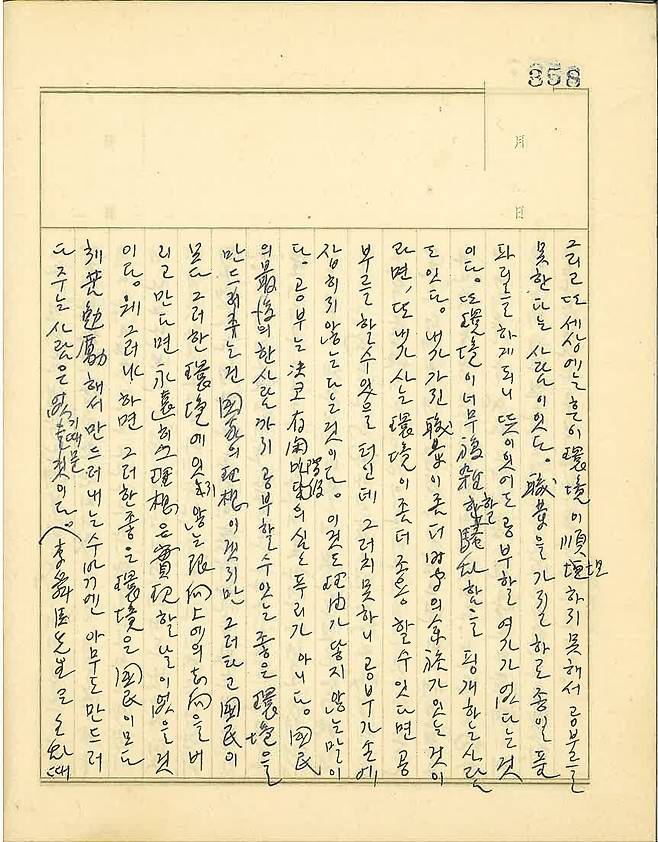 858
月
日
그리고 또 세상에는 흔이 環境이 順坦하지 못해서 공부를
못한다는 사람이 잇다. 職業을 가지고 하로 종일 품
파리를 하게되니 뜻이 잇어도 공부할 여가가 없다는 것
이다. 또 環境이 너무 複雜 함을 핑개하는 사람
도 잇다. 내가 가진 職業이 좀 더 時間의 余裕가 잇는 것이
라면, 또 내가 사는 環境이 좀더 조용할 수 잇다면 공
부를 할 수 잇을 터인데 그러치 못하니 공부가 손에
잡히지 않는다는 것이다. 이것도 理由가 닿지 않는 말이
다. 공부는 决코 有閑 의 심심푸리가 아니다. 國民
의 最後의 한사람까지 공부할 수 잇는 좋은 環境을
만드러주는 건 國家의 理想이겟지만 그러타고 國民이
모다 그러한 環境에 잇지 않는 限 向上에의 志向을 버
리고 만다면 永遠히 그 理想은 實現할 날이 없을 것
이다. 웨 그러냐하면 그러한 좋은 環境은 國民이 모다
刻苦勉勵해서 만드러내는 수밖엔 아무도 만드러
다 주는 사람은 없기 때문이다. 李舜臣先生을 보라 때